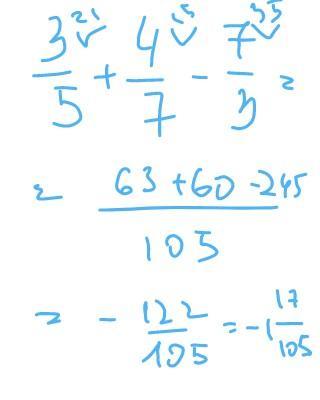 3 21 4 15 7 35
3/5 + 4/7 - 7/3 =
= (63 + 60 - 245)/105
= - 122/105 = -1 17/105